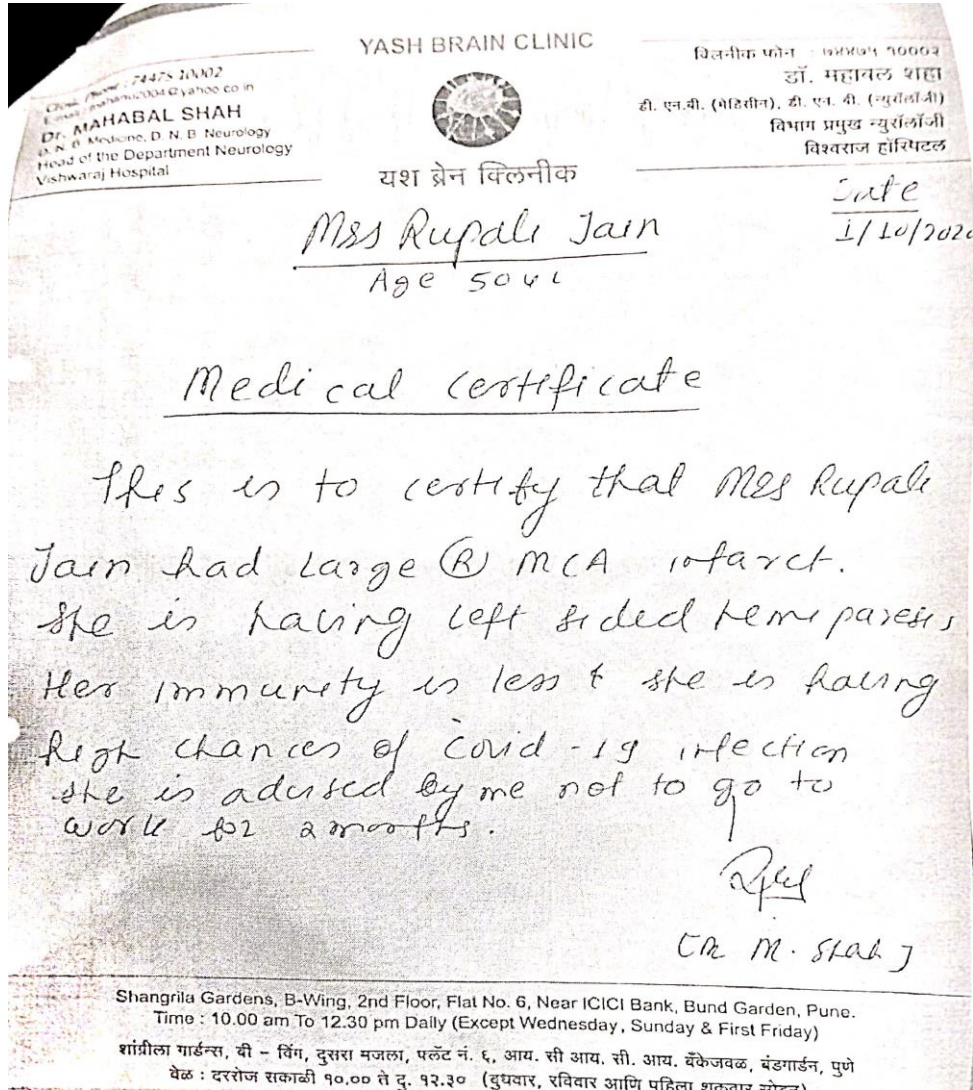 YASH BRAIN CLINIC
Clinic Phone : 74475 10002
Dr. MAHABAL SHAH
D. N. B. Medicine, D. N. B. Neurology
Head of the Department Neurology
Vishwaraj Hospital
यश ब्रेन क्लिनीक
क्लिनीक फोन : ७४४७५ १०००२
डॉ. महाबल शहा
डी. एन.बी. (मेडिसीन), डी. एन. बी. (न्युरॉलॉजी)
विभाग प्रमुख न्युरॉलॉजी
विश्वराज हॉस्पिटल
Date
1/10/202
Mrs Rupali Jain
Age 50
Medical Certificate
This is to certify that Mrs Rupali
Jain had Large Ⓡ MCA infarct.
She is having left sided hemiparesis
Her immunity is less & she is having
high chances of covid-19 infection
she is advised by me not to go to
work for 2 months.
[Dr M. Shah]
Shangrila Gardens, B-Wing, 2nd Floor, Flat No. 6, Near ICICI Bank, Bund Garden, Pune.
Time : 10.00 am To 12.30 pm Daily (Except Wednesday, Sunday & First Friday)
शांग्रीला गार्डन्स, बी – विंग, दुसरा मजला, फ्लॅट नं. ६, आय. सी आय. सी. आय. बँकेजवळ, बंडगार्डन, पुणे
वेळ : दररोज सकाळी १०.०० ते दु. १२.३० (बुधवार, रविवार आणि पहिला शुक्रवार सोडून)